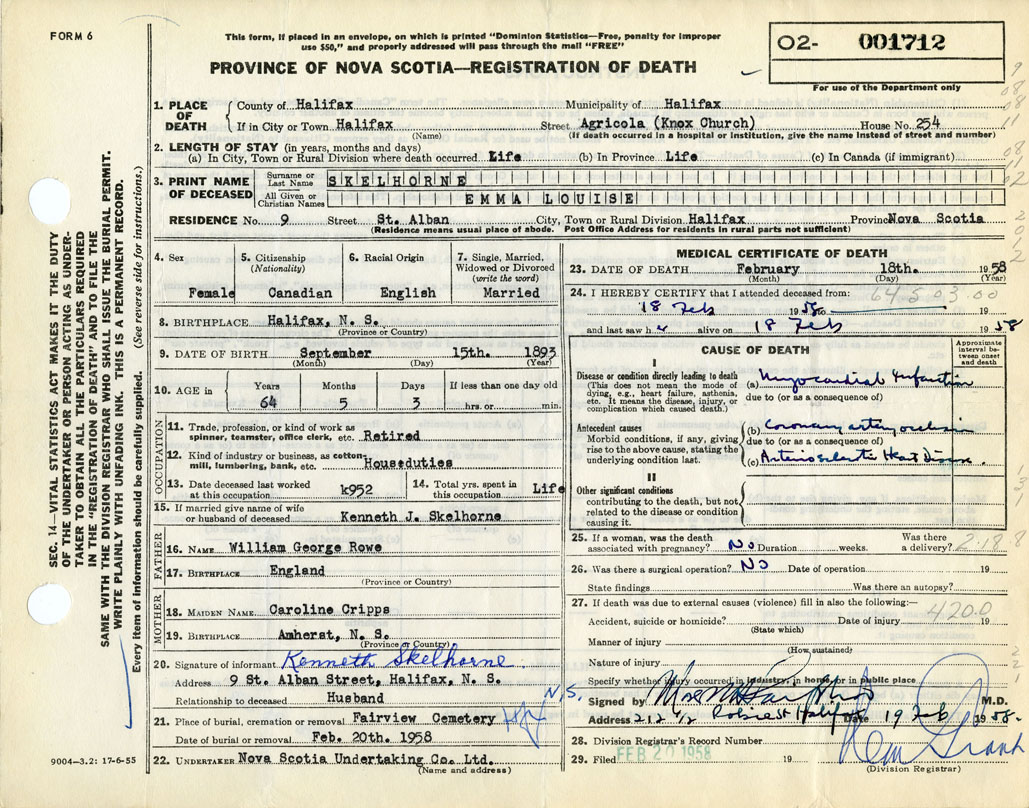 FORM 6
This form, if placed in an envelope, on which is printed "Dominion Statistics—Free, penalty for improper
use $50," and properly addressed will pass through the mail "FREE"
PROVINCE OF NOVA SCOTIA—REGISTRATION OF DEATH
02- 001712
For use of the Department only
SEC. 14—VITAL STATISTICS ACT MAKES IT THE DUTY
OF THE UNDERTAKER OR PERSON ACTING AS UNDER-
TAKER TO OBTAIN ALL THE PARTICULARS REQUIRED
IN THE "REGISTRATION OF DEATH" AND TO FILE THE
SAME WITH THE DIVISION REGISTRAR WHO SHALL ISSUE THE BURIAL PERMIT.
WRITE PLAINLY WITH UNFADING INK. THIS IS A PERMANENT RECORD.
Every item of information should be carefully supplied. (See reverse side for instructions.)
1. PLACE OF DEATH
County of Halifax Municipality of Halifax
If in City or Town Halifax Street Agricola (Knox Church) House No. 254
(Name) (If death occurred in a hospital or institution, give the name instead of street and number)
2. LENGTH OF STAY (in years, months and days)
(a) In City, Town or Rural Division where death occurred Life (b) In Province Life (c) In Canada (if immigrant)
3. PRINT NAME OF DECEASED
Surname or Last Name SKELHORNE
All Given or Christian Names EMMA LOUISE
RESIDENCE No. 9 Street St. Alban City, Town or Rural Division Halifax Province Nova Scotia
(Residence means usual place of abode. Post Office Address for residents in rural parts not sufficient)
4. Sex Female
5. Citizenship (Nationality) Canadian
6. Racial Origin English
7. Single, Married, Widowed or Divorced (write the word) Married
8. BIRTHPLACE Halifax, N. S.
(Province or Country)
9. DATE OF BIRTH September 15th. 1893
(Month) (Day) (Year)
10. AGE in Years 64 Months 5 Days 3 If less than one day old hrs. or min.
OCCUPATION
11. Trade, profession, or kind of work as spinner, teamster, office clerk, etc. Retired
12. Kind of industry or business, as cotton-mill, lumbering, bank, etc. Houseduties
13. Date deceased last worked at this occupation k952
14. Total yrs. spent in this occupation Life
15. If married give name of wife or husband of deceased Kenneth J. Skelhorne
FATHER
16. NAME William George Rowe
17. BIRTHPLACE England
(Province or Country)
MOTHER
18. MAIDEN NAME Caroline Cripps
19. BIRTHPLACE Amherst, N. S.
(Province or Country)
20. Signature of informant Kenneth Skelhorne.
Address 9 St. Alban Street, Halifax, N. S.
Relationship to deceased Husband
N.S.
21. Place of burial, cremation or removal Fairview Cemetery
Date of burial or removal Feb. 20th. 1958
22. UNDERTAKER Nova Scotia Undertaking Co. Ltd.
(Name and address)
9004—3.2: 17-6-55
MEDICAL CERTIFICATE OF DEATH
23. DATE OF DEATH February 18th. 1958
(Month) (Day) (Year)
24. I HEREBY CERTIFY that I attended deceased from:
64503.00
18 Feb 1958 to
and last saw her alive on 18 Feb 1958
CAUSE OF DEATH
Approximate interval between onset and death
I
Disease or condition directly leading to death
(This does not mean the mode of dying, e.g., heart failure, asthenia, etc. It means the disease, injury, or complication which caused death.)
(a) Myocardial Infarction
due to (or as a consequence of)
Antecedent causes
Morbid conditions, if any, giving rise to the above cause, stating the underlying condition last.
(b) Coronary artery occlusion
due to (or as a consequence of)
(c) Arteriosclerotic Heart Disease.
II
Other significant conditions
contributing to the death, but not related to the disease or condition causing it.
25. If a woman, was the death associated with pregnancy? No Duration weeks. Was there a delivery?
2.18.8
26. Was there a surgical operation? No Date of operation 19
State findings Was there an autopsy?
27. If death was due to external causes (violence) fill in also the following:—
4200
Accident, suicide or homicide? Date of injury 19
(State which)
Manner of injury
(How sustained)
Nature of injury
Specify whether injury occurred in industry, in home, or in public place
Signed by M.D.
Address 212 1/2 Robie St Halifax Date 19 Feb 1958.
28. Division Registrar's Record Number
29. Filed FEB 20 1958 19
(Division Registrar)